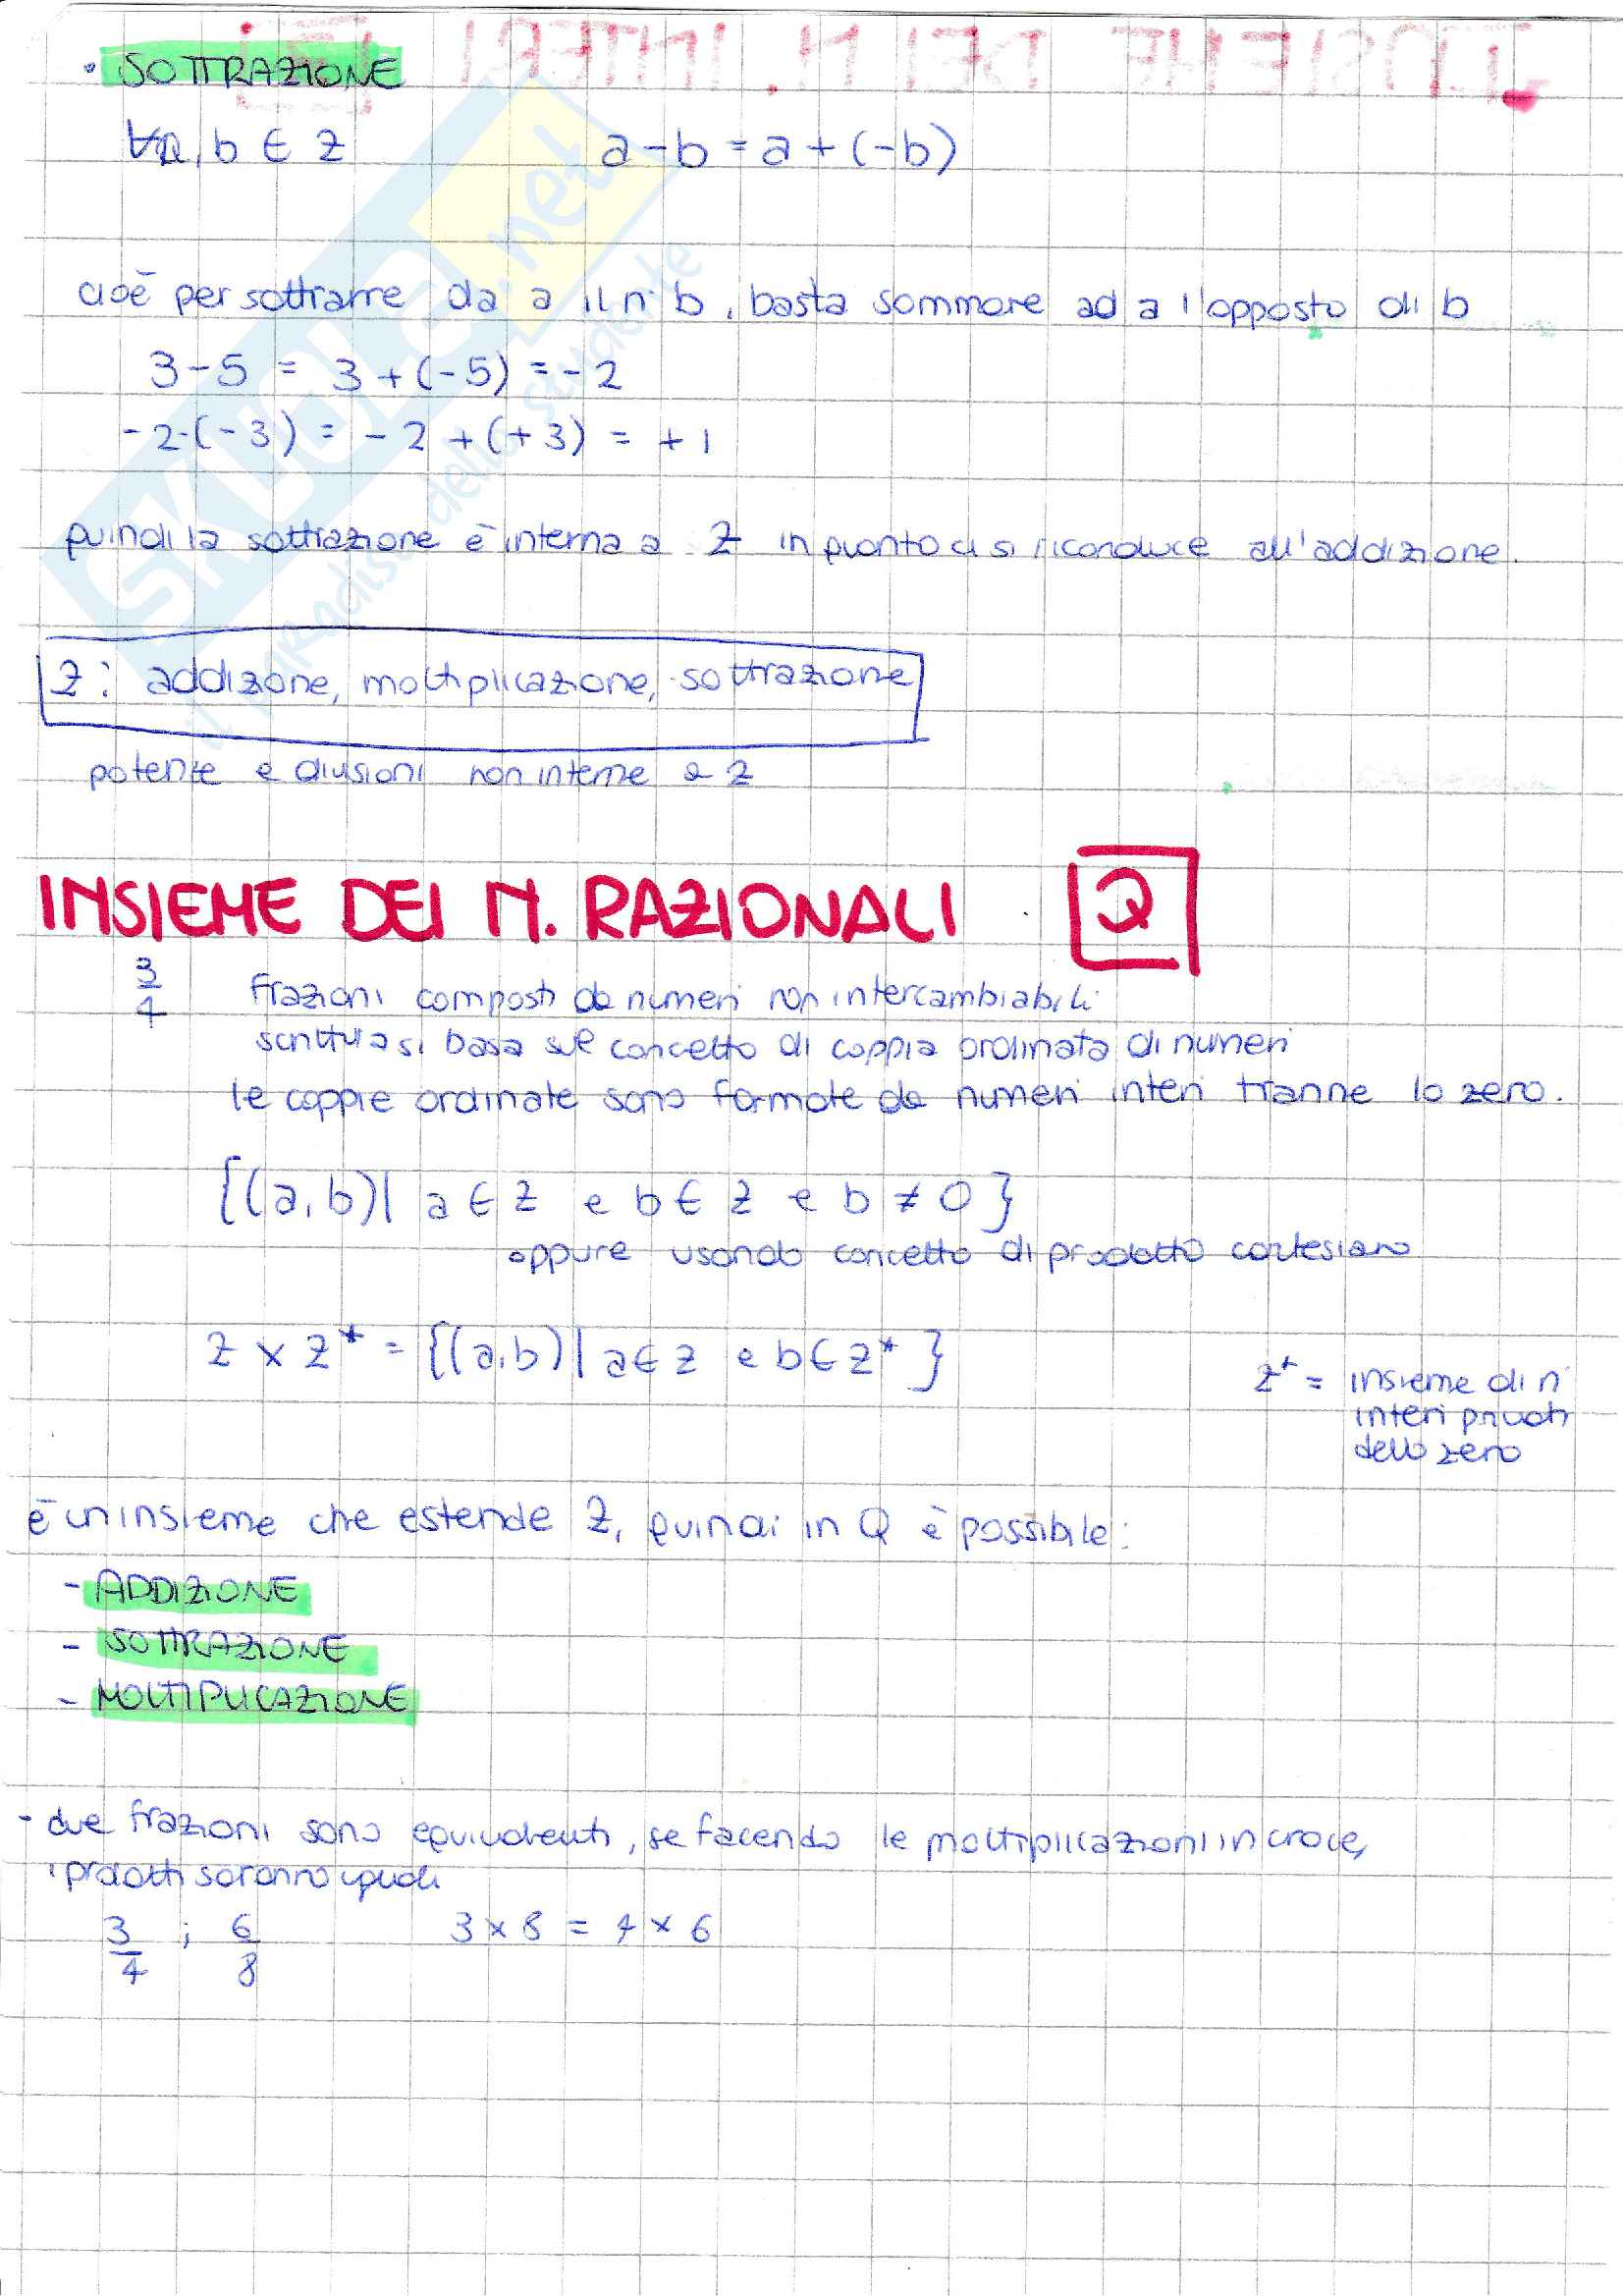 • SOTTRAZIONE
∀a, b ∈ Z a-b = a+(-b)
cioè per sottrarre da a il n° b, basta sommare ad a l'opposto di b
3-5 = 3+(-5) = -2
-2-(-3) = -2 +(+3) = +1
quindi la sottrazione è interna a Z in quanto ci si riconduce all'addizione.
Z: addizione, moltiplicazione, sottrazione
potenze e divisioni non interne a Z
INSIEME DEI N. RAZIONALI Q
3/4 frazioni composti da numeri non intercambiabili
scrittura si basa sul concetto di coppia ordinata di numeri
le coppie ordinate sono formate da numeri interi tranne lo zero.
{(a,b)| a ∈ Z e b ∈ Z e b ≠ 0}
oppure usando concetto di prodotto cartesiano
Z × Z* = {(a,b)| a ∈ Z e b ∈ Z*}
Z* = insieme di n°
interi privati
dello zero
è un insieme che estende Z, quindi in Q è possibile:
- ADDIZIONE
- SOTTRAZIONE
- MOLTIPLICAZIONE
- due frazioni sono equivalenti, se facendo le moltiplicazioni in croce,
i prodotti saranno uguali
3/4 ; 6/8 3 × 8 = 4 × 6
SKUOLA.net
il paradiso dello studente